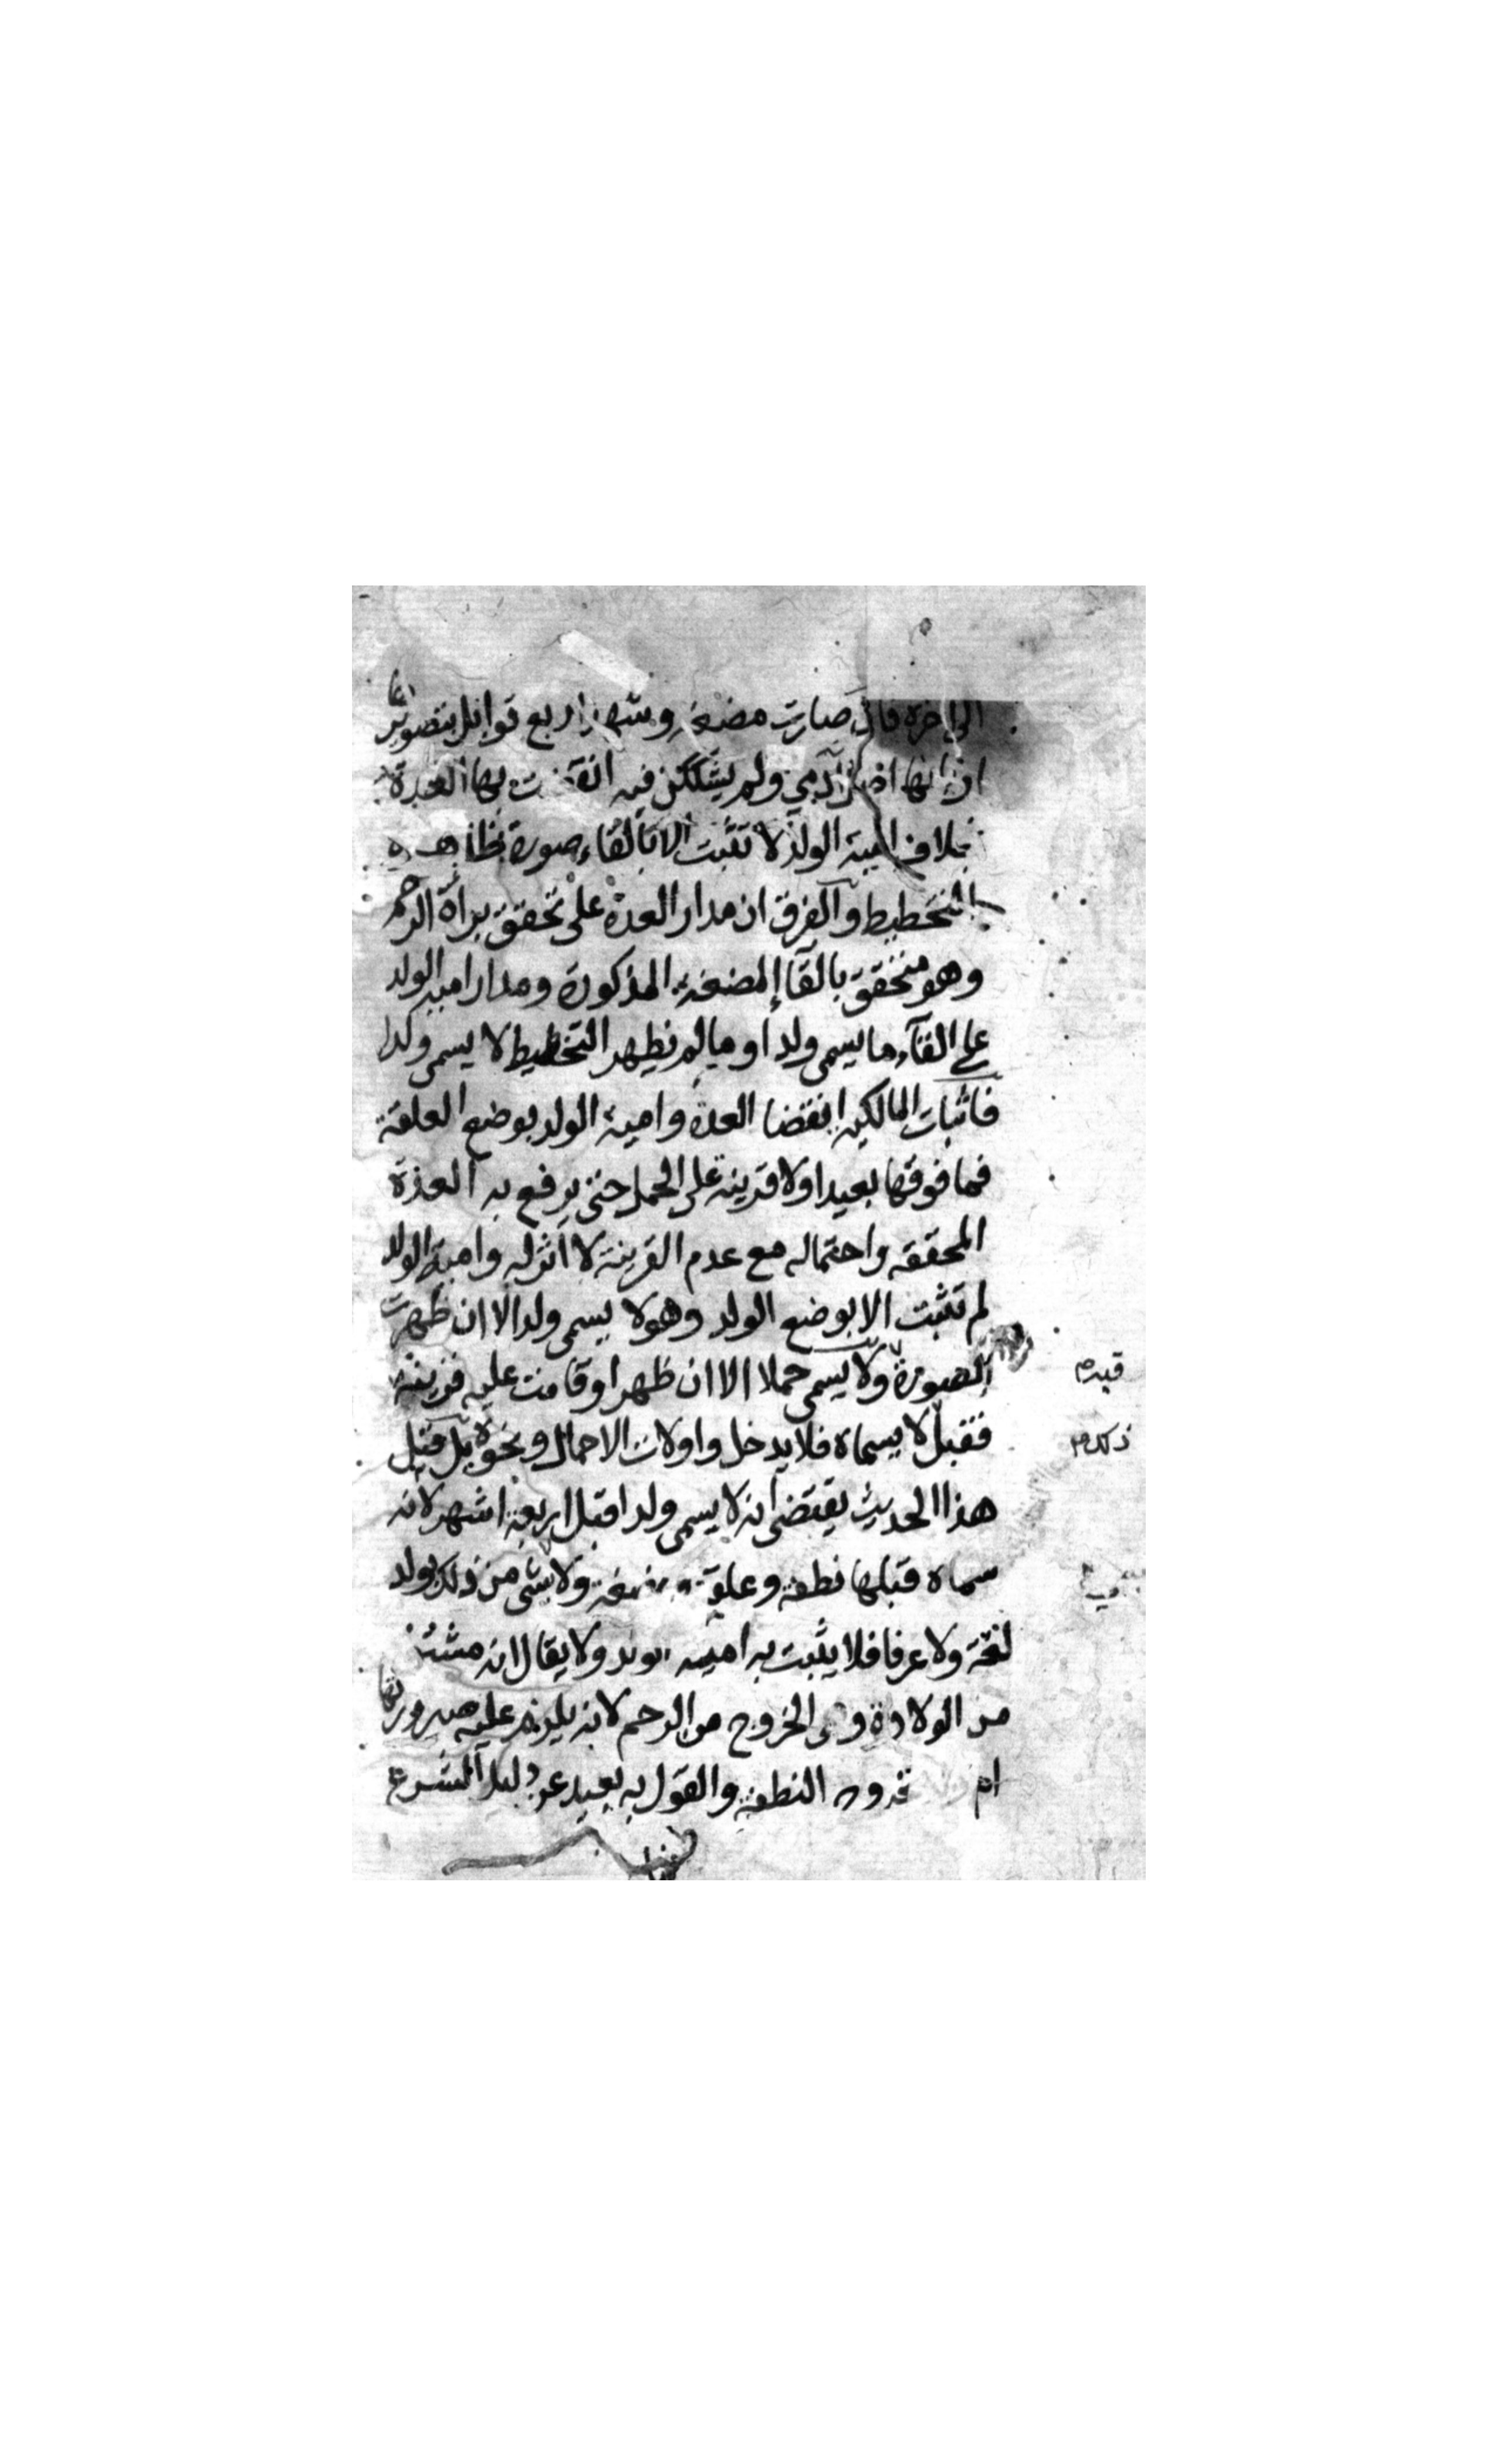 الى اخره فان صارت مضغة وشهد اربع قوابل بتصويرها
او بانها اصل آدمي ولم يتشككن فيه انقضت بها العدة
بخلاف امية الولد لا تثبت الا بالقاء صورة ظاهرة
التخطيط والفرق ان مدار العدة على تحقق براة الرحم
وهو متحقق بالقآء المضغة المذكورة ومدار امية الولد
على القآء ما يسمى ولدا وما لم يظهر التخطيط لا يسمى ولدا
فاثبات المالكية انقضا العدة وامية الولد بوضع العلقة
فما فوقها بعيد اولا قرينة على الحمل حتى يرفع به العدة
المحققه واحتماله مع عدم القرينة لا اثر له وامية الولد
لم تثبت الا بوضع الولد وهو لا يسمى ولدا الا ان ظهرت
الصورة ولا يسمى حملا الا ان ظهر او قامت عليه قرينة
قيه م
فقبل لا يسماه فلا يدخل واولات الاحمال ونحوه بل قبل
ذلك م
هذا الحديث يقتضي انه لا يسمى ولدا قبل اربعة اشهر لانه
سماه قبلها نطفة وعلقة ومضغة ولا يسمى من ذلك بولد
لغة ولا عرفا فلا يثبت به امية الولد ولا يقال انه مشتق
من الولادة وهى الخروج من الرحم لانه يلزم عليه صيرورتها
ام بخروج النطفة والقول به بعيد عن دليل الشرع